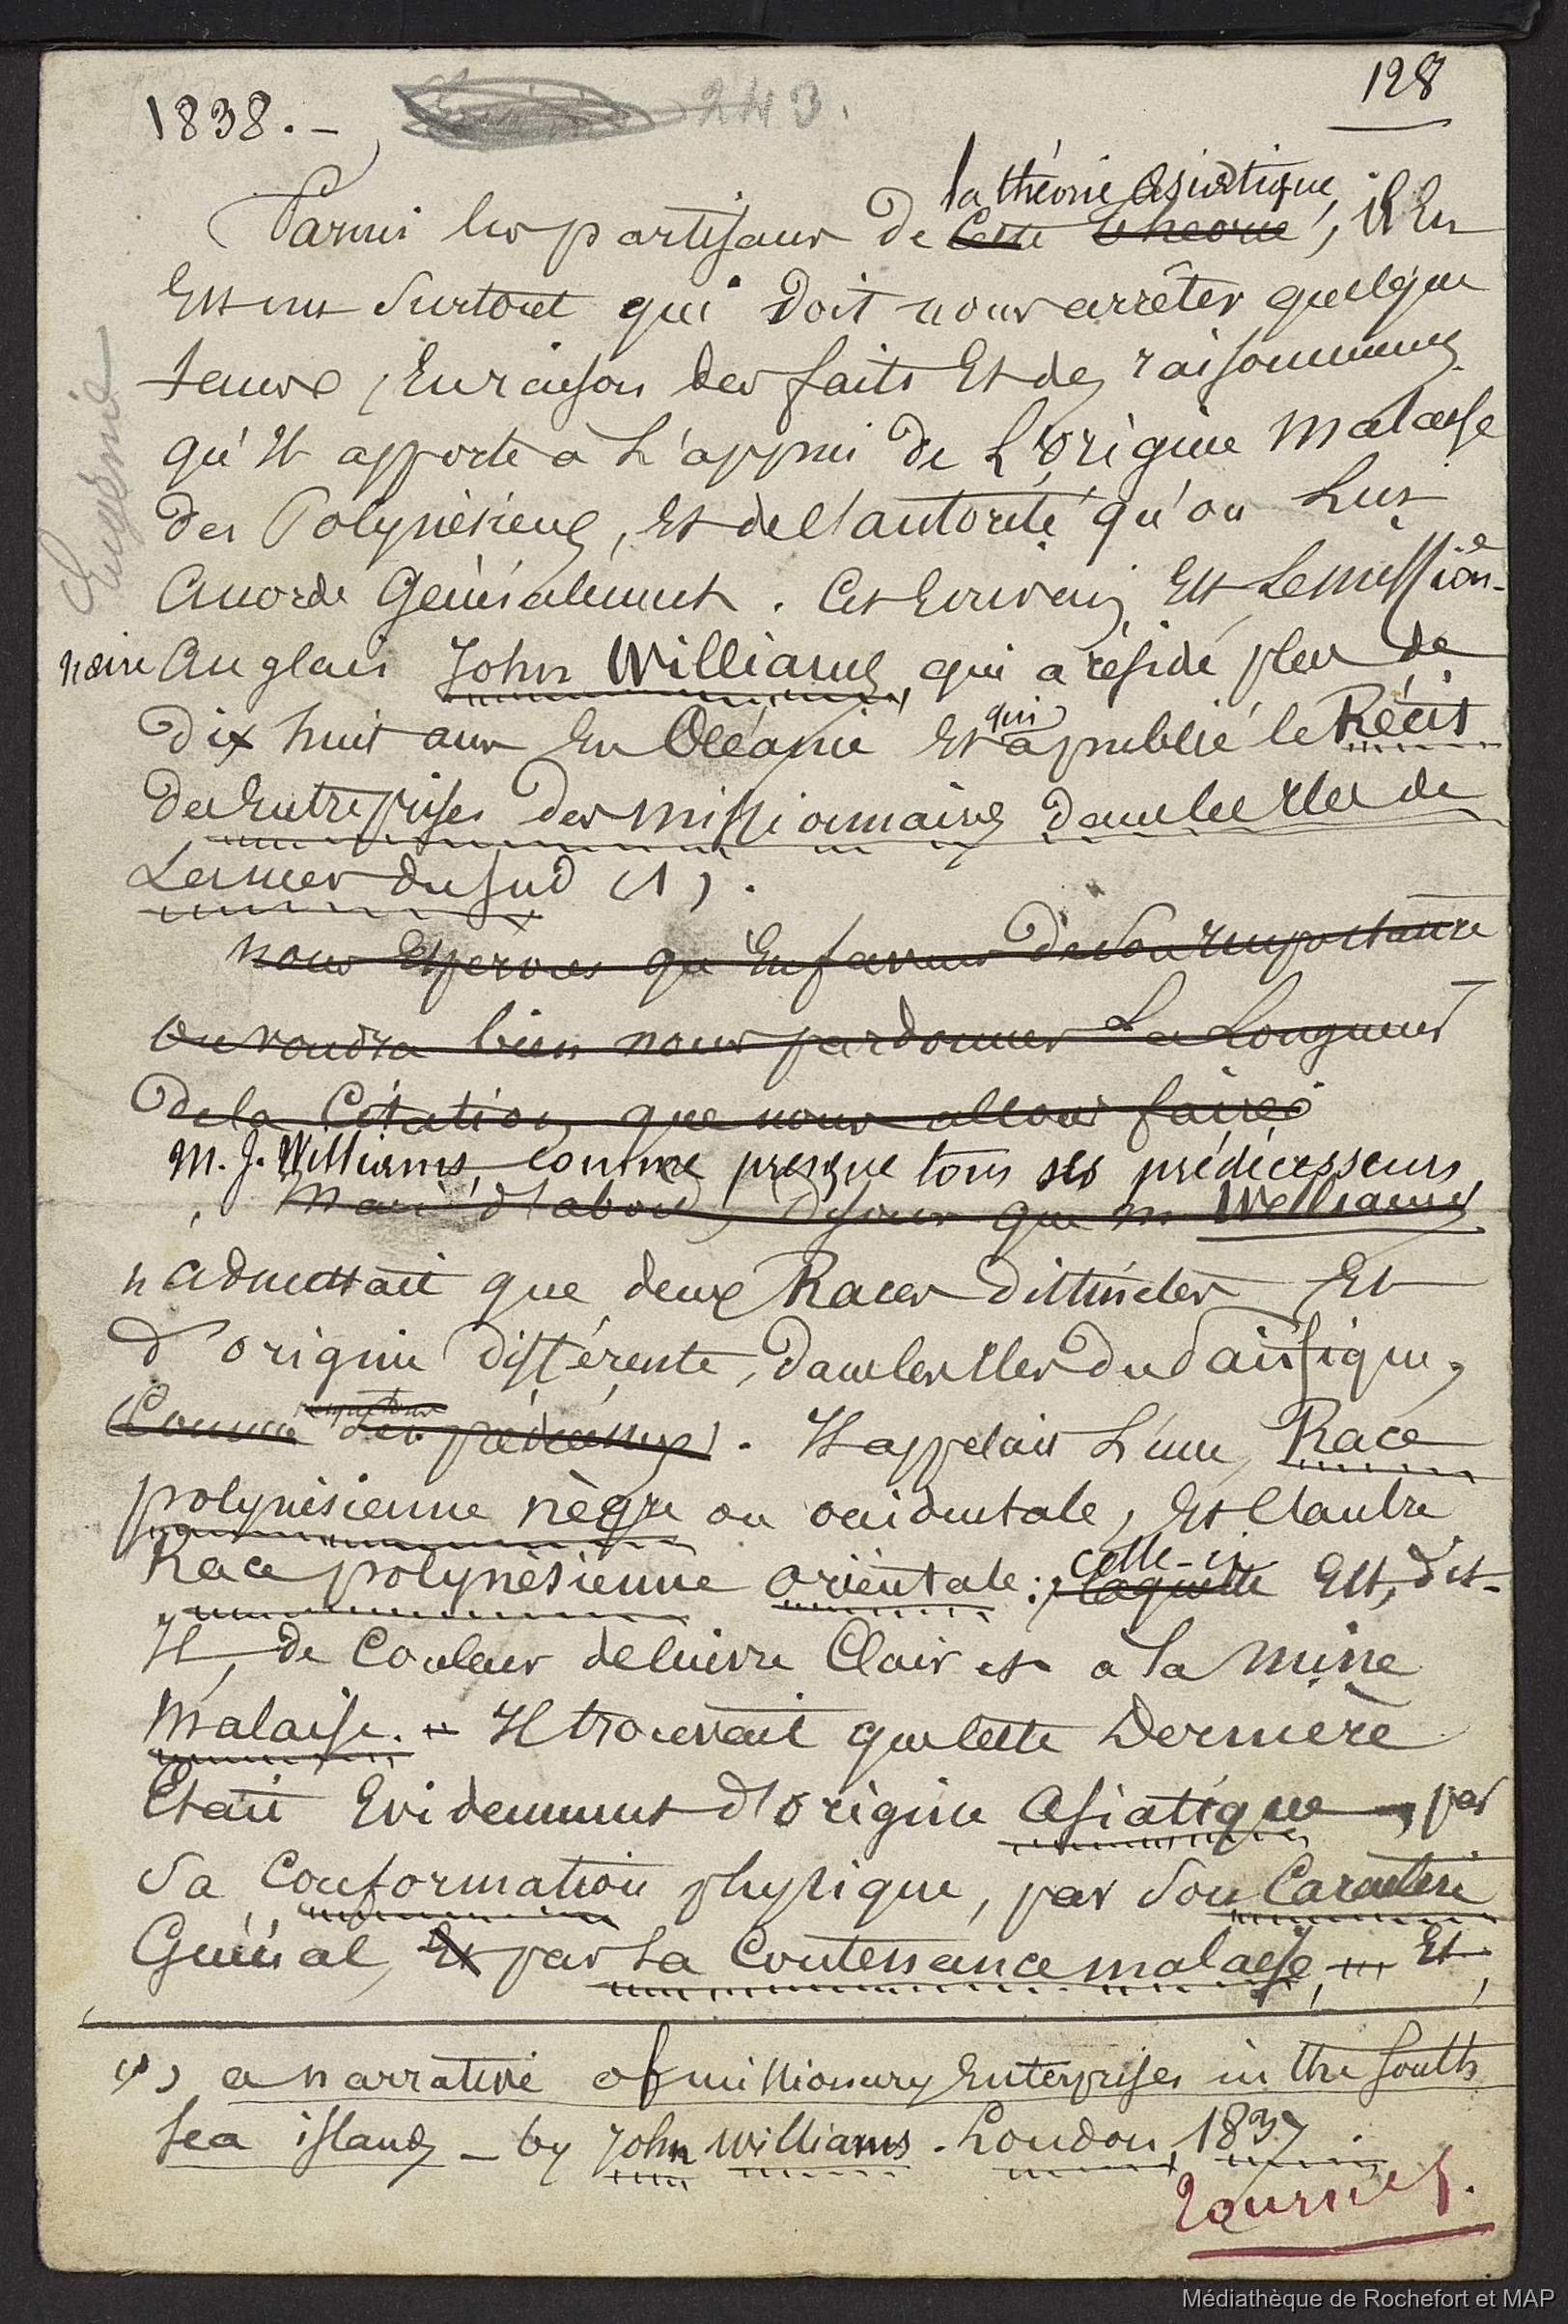 128
1838. -
243.
la théorie asiatique,
Parmi les partisans de cette théorie, il en
est un surtout qui doit nous arrêter quelque
temps, en raison des faits et des raisonnemens
qu'il apporte à l'appui de l'origine malaise
des Polynésiens, et de l'autorité qu'on lui
accorde généralement. Cet écrivain est le mission-
naire anglais John Williams, qui a résidé plus de
qui
dix huit ans en Océanie et a publié le Récit
des entreprises des missionnaires dans les iles de
la mer du sud (1).
nous espérons qu'en faveur de son importance
on voudra bien nous pardonner la longueur
de la citation que nous allons faire
M. J. Williams, comme presque tous ses prédécesseurs,
Mais d'abord, disons que M Williams
n'admettait que deux Races distinctes et
d'origine différente, dans les iles du Pacifique,
Comme ses prédécesseurs. Il appelait l'une, Race
polynésienne nègre ou occidentale, et l'autre
Race polynésienne orientale :
celle-ci
laquelle est, dit-
il, de couleur de cuivre clair et a la mine
malaise. Il trouvait que cette dernière
était évidemment d'origine asiatique, par
sa conformation physique, par son caractère
général, et par sa contenance malaise, et
(1) a narrative of missionary enterprises in the south
sea islands - by John Williams. London, 1837.
tournez.
Eugénie